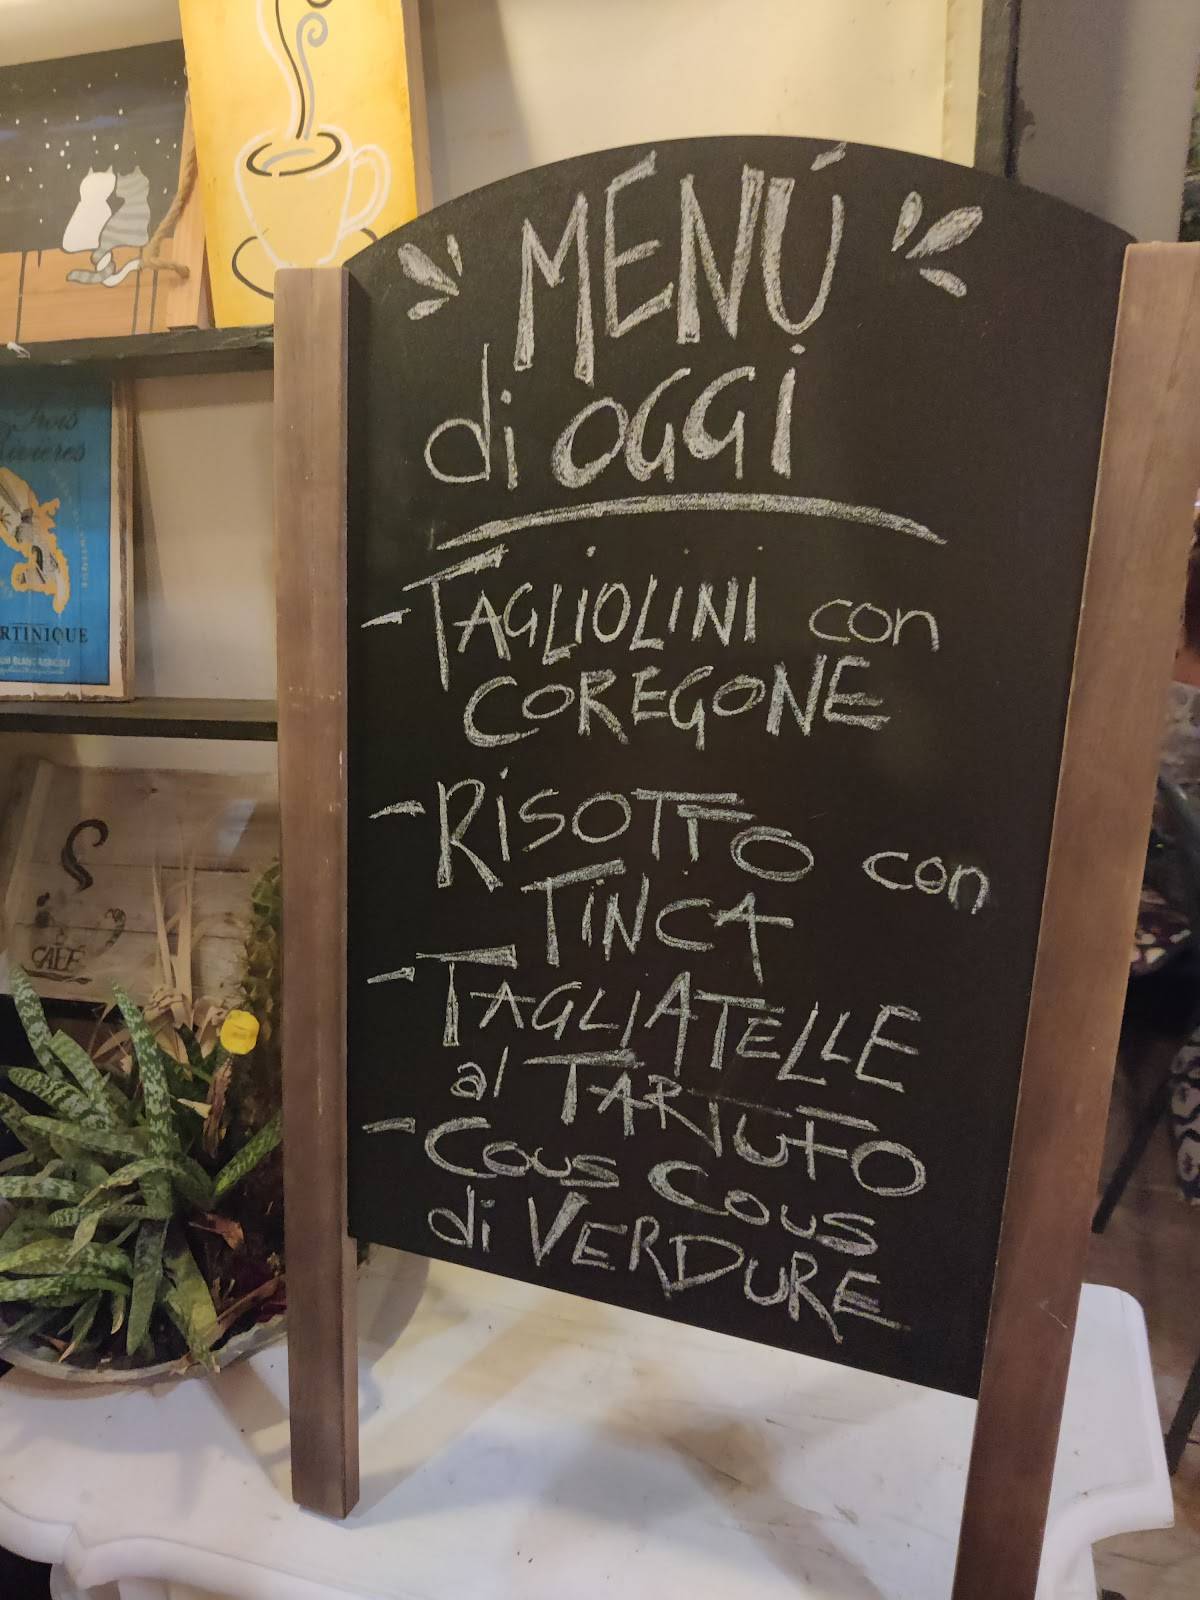 MENÚ
di OGGI
- TAGLIOLINI con
COREGONE
- RISOTTO con
TINCA
- TAGLIATELLE
al TARTUFO
- COUS COUS
di VERDURE
Trois
Rivières
RTINIQUE
CAFÉ